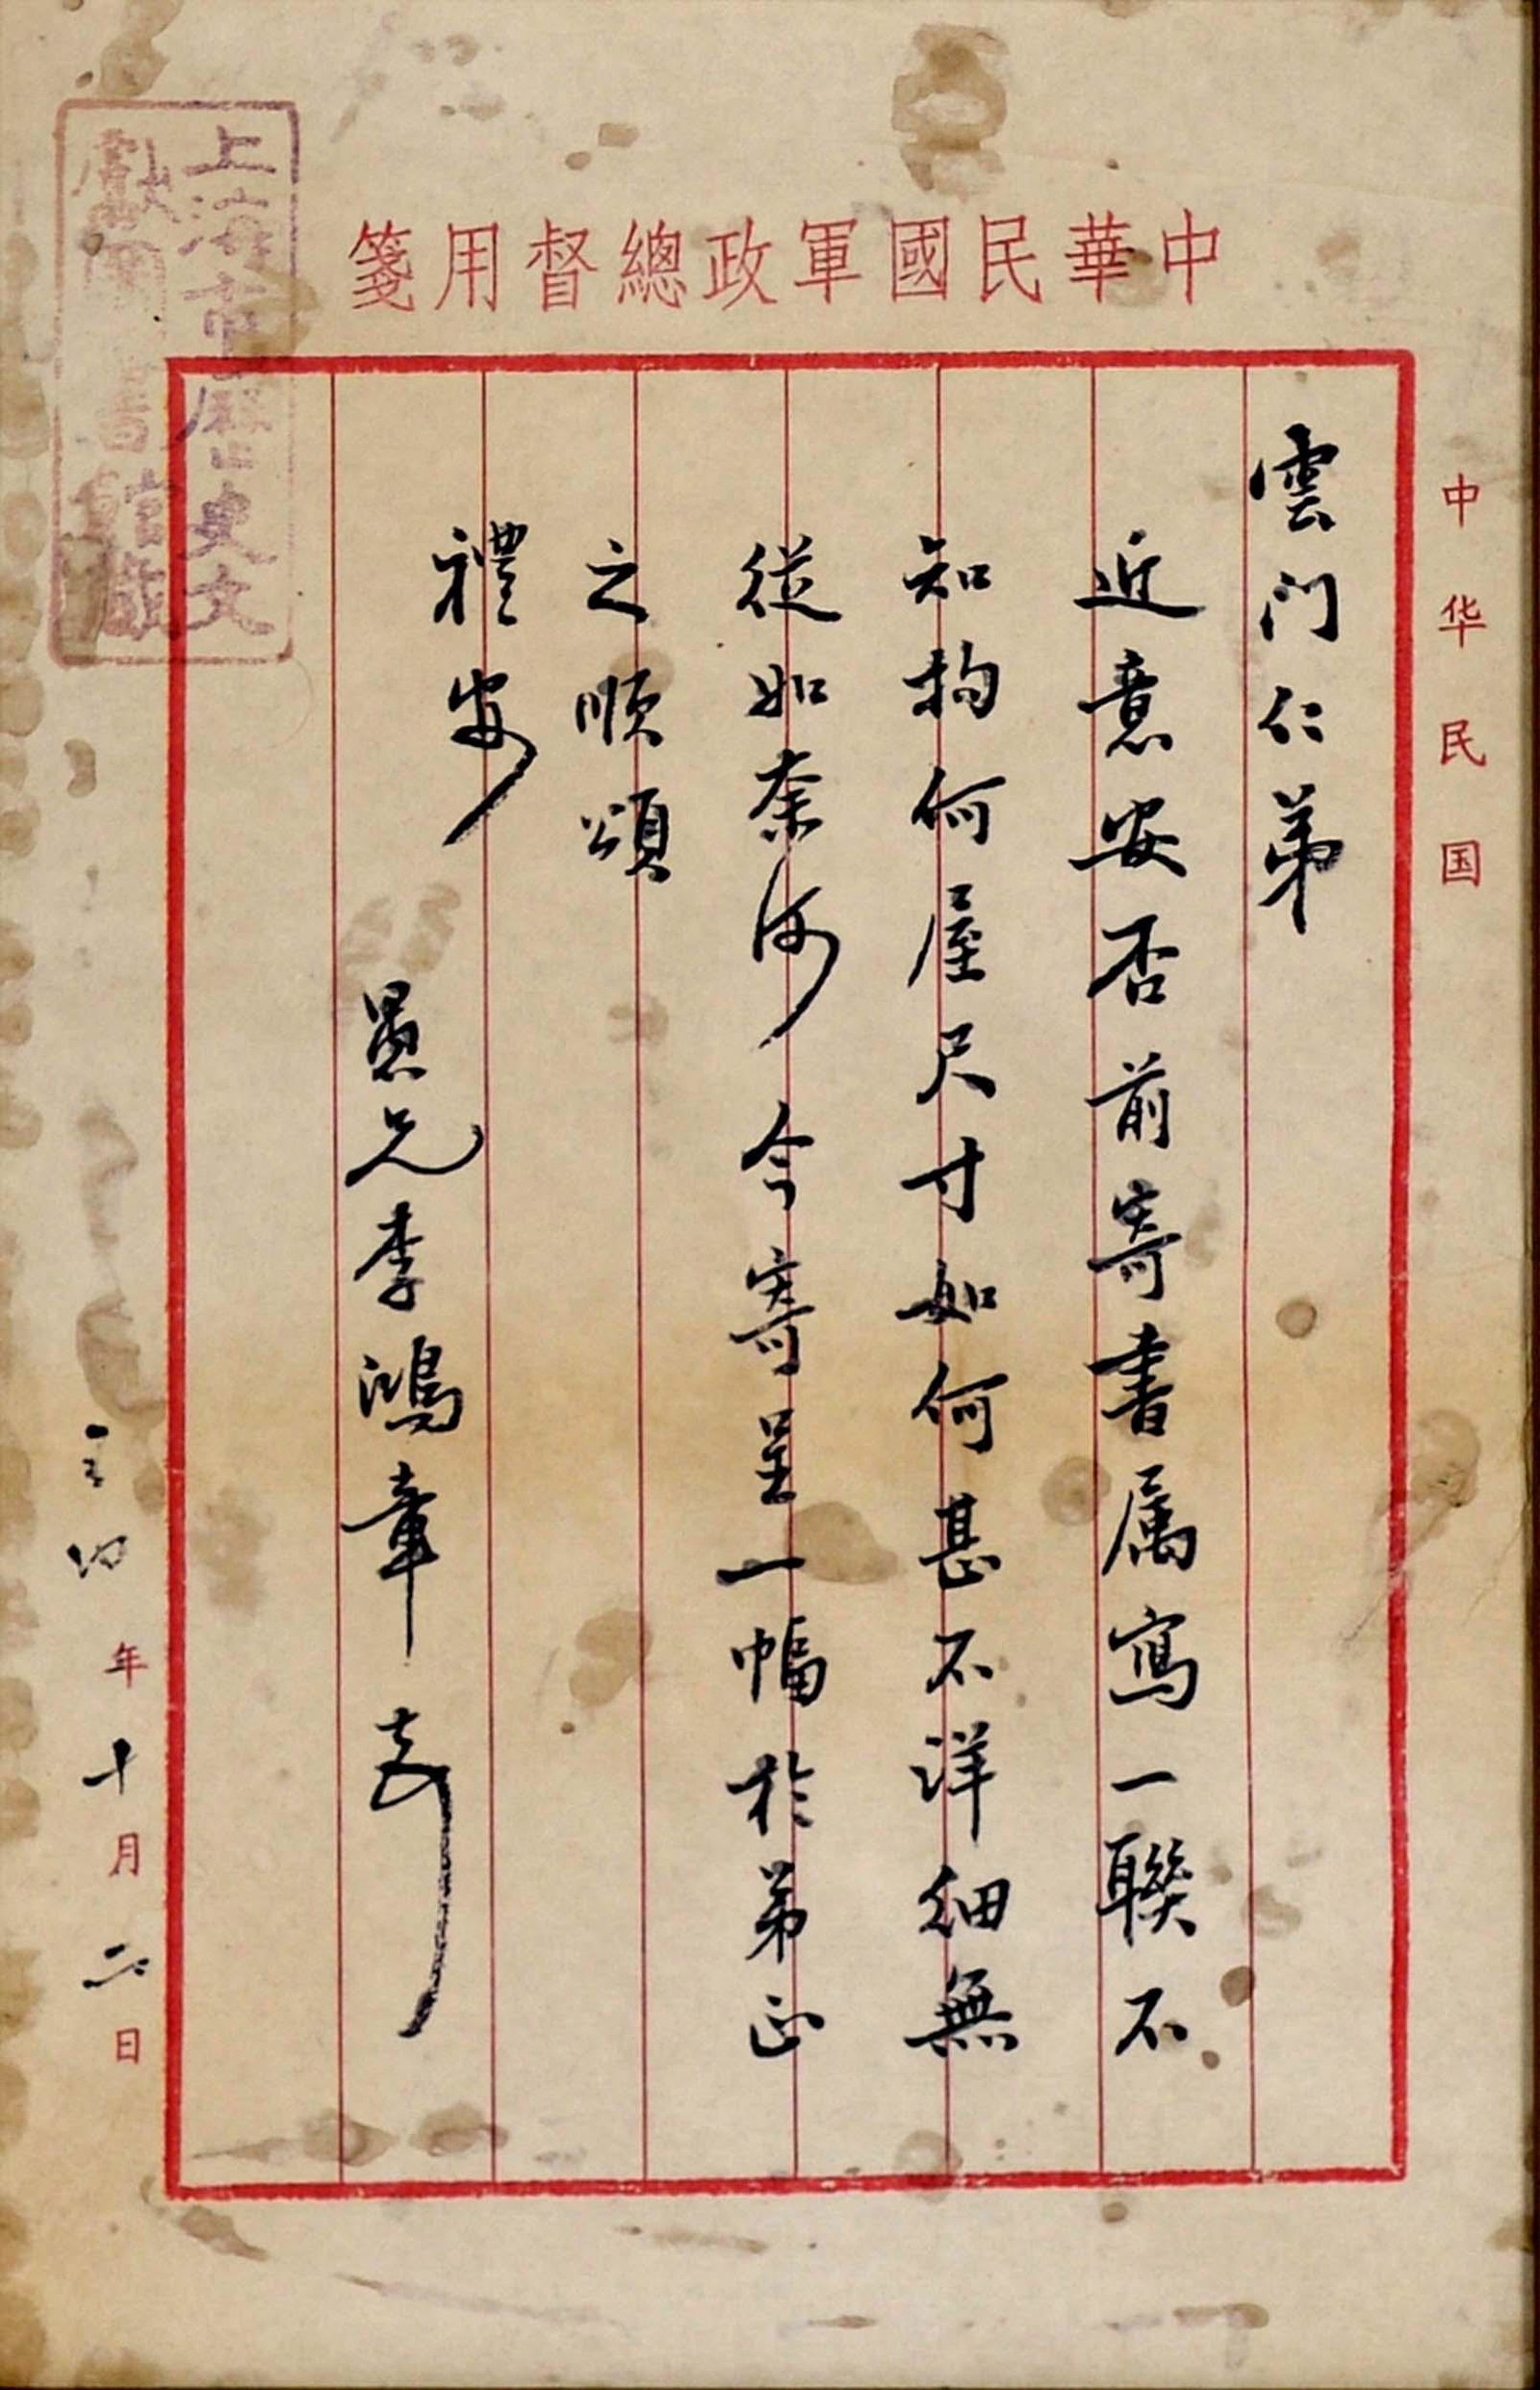 中華民國軍政總督用箋
中华民国
雲门仁弟
近意安否前寄書属寫一聯不
知拘何屋尺寸如何甚不洋细無
從如奈何今寄呈一幅於弟正
之順頌
禮安
愚兄李鴻章
年十月二日
上海市歷史文
獻圖書館藏